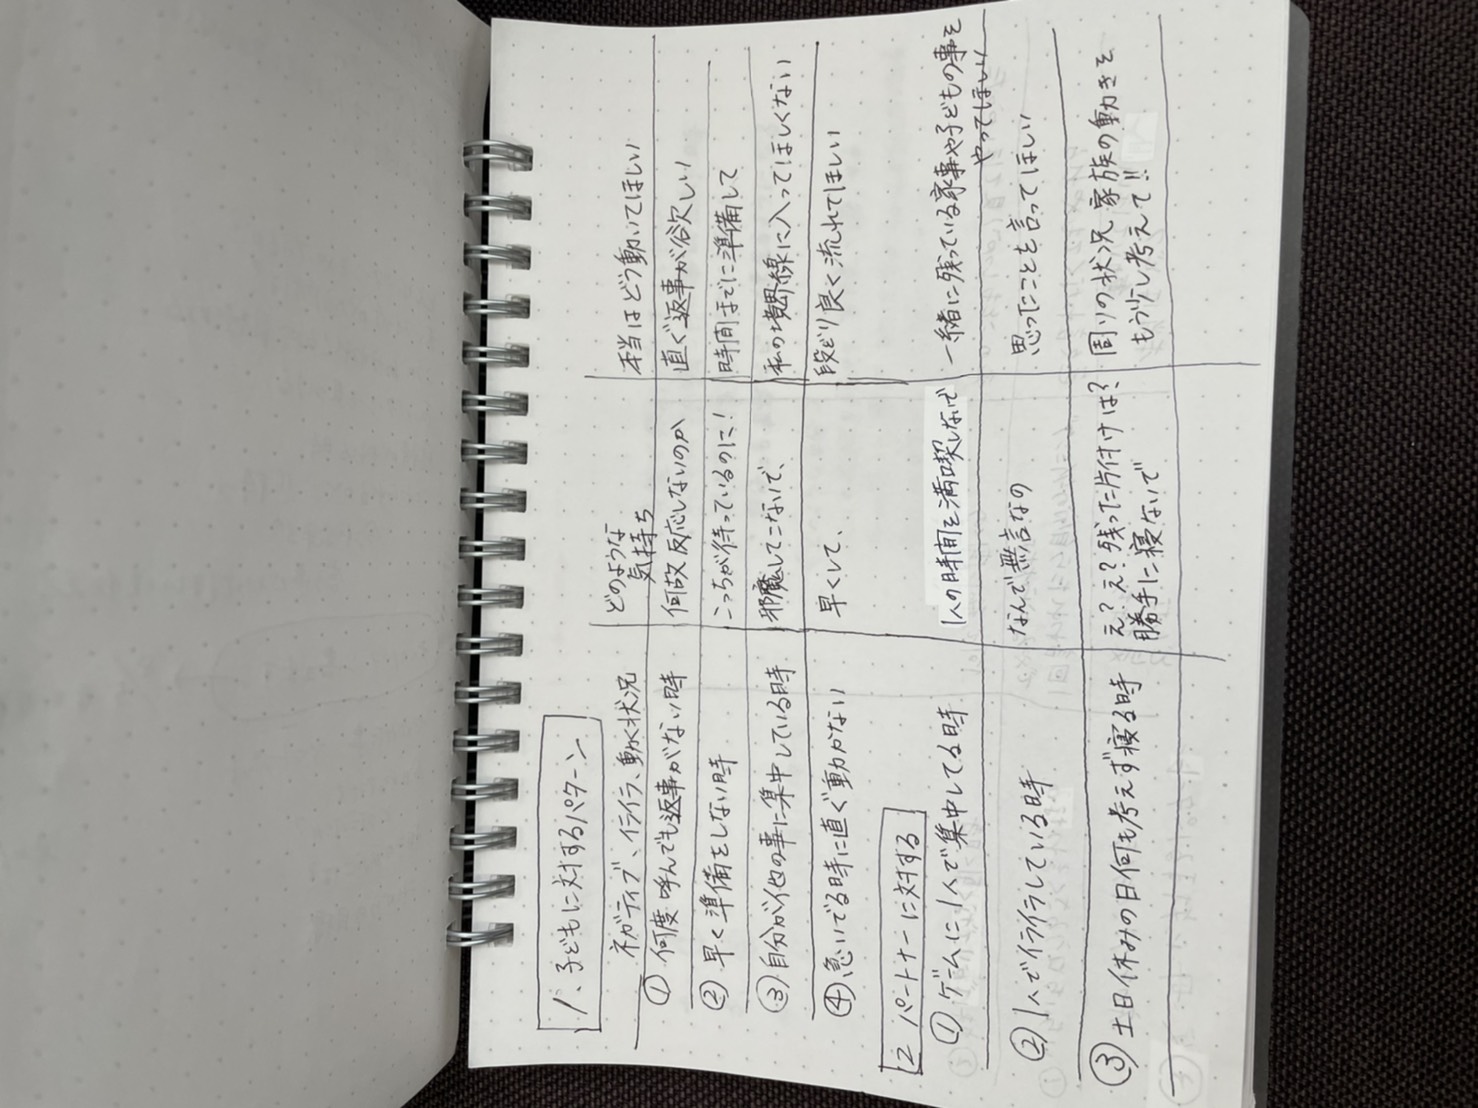 1、子どもに対するパターン
ネガティブ、イライラ、動く状況 どのような気持ち 本当はどう動いてほしい
① 何度呼んでも返事がない時 何故反応しないのか 直ぐ返事が欲しい
② 早く準備をしない時 こっちが待っているのに! 時間までに準備して
③ 自分が他の事に集中している時 邪魔してこないで、 私の境界線に入ってほしくない
④ 急いでる時に直ぐ動かない 早くして、 段どり良く流れてほしい
2 パートナーに対する
① ゲームに1人で集中してる時 1人の時間を満喫しないで 一緒に残っている家事や子どもの事を
やってほしい
② 1人でイライラしている時 なんで無言なの 思ったことを言ってほしい
③ 土日休みの日何も考えず寝る時 え?え?残った片付けは? 周りの状況 家族の動きを
勝手に寝ないで もう少し考えて!!